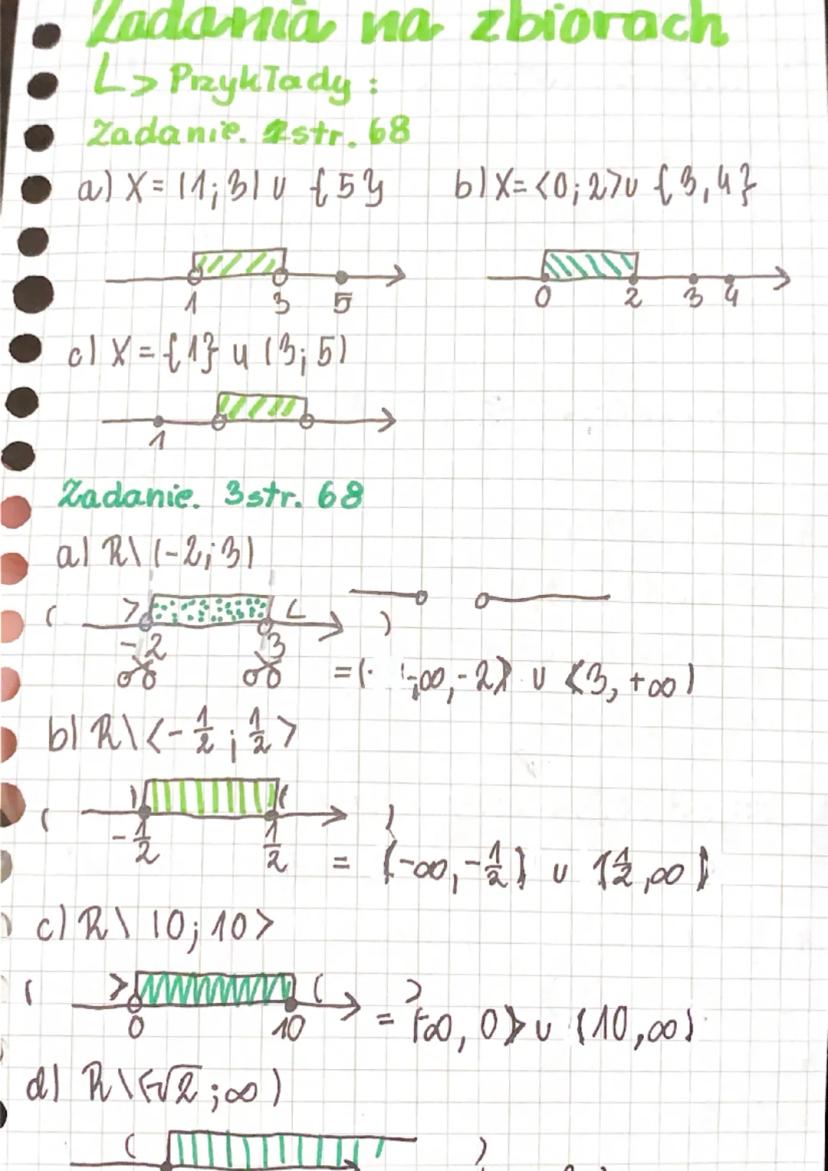 Zadania na zbiorach
↳> Przykłady:
Zadanie. 2str. 68
a) X = (1; 3) ∪ {5} b) X = <0; 2> ∪ {3, 4}
1 3 5 0 2 3 4
c) X = {1} ∪ (3; 5)
1
Zadanie. 3str. 68
a) R\(-2; 3)
( > < )
-2 3
= (-∞, -2> ∪ <3, +∞)
b) R\<-1/2 ; 1/2>
( ) ( )
-1/2 1/2 = (-∞, -1/2) ∪ (1/2, ∞)
c) R\(0; 10>
( > ( )
0 10 = (-∞, 0> ∪ (10, ∞)
d) R\(√2 ; ∞)
( )